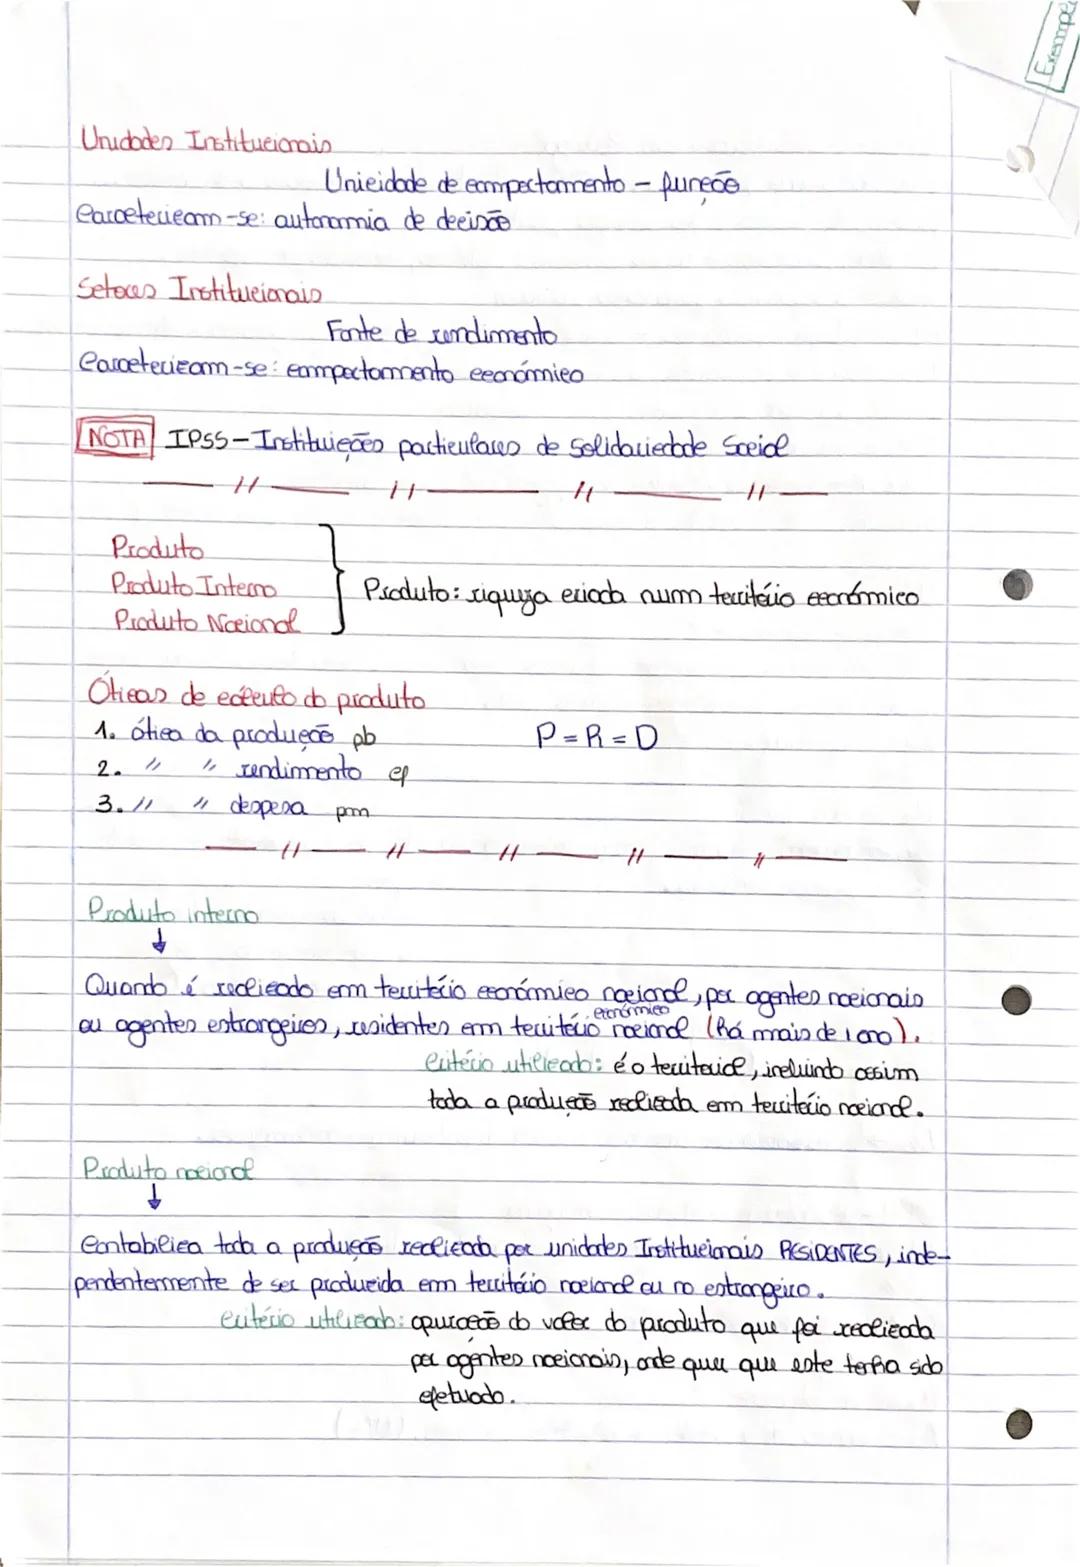 Exempl
Unidades Institucionais
Unicidade de comportamento - função
Caracterizam-se: autonomia de decisão
Setores Institucionais
Fonte de rendimento
Caracterizam-se: comportamento económico
NOTA IPSS - Instituições particulares de Solidariedade Social
Produto
Produto Interno
Produto Nacional
Produto: riqueza criada num território económico
Óticas de cálculo do produto
1. ótica da produção pb
P = R = D
2. " " rendimento cf
3. " " despesa pm
Produto interno
Quando é realizado em território económico nacional, por agentes nacionais
ou agentes estrangeiros, residentes em território económico nacional (há mais de 1 ano).
critério utilizado: é o territorial, incluindo assim
toda a produção realizada em território nacional.
Produto nacional
Contabiliza toda a produção realizada por unidades Institucionais RESIDENTES, inde-
pendentemente de ser produzida em território nacional ou no estrangeiro.
critério utilizado: apuração do valor do produto que foi realizada
por agentes nacionais, onde quer que este tenha sido
efetuado.